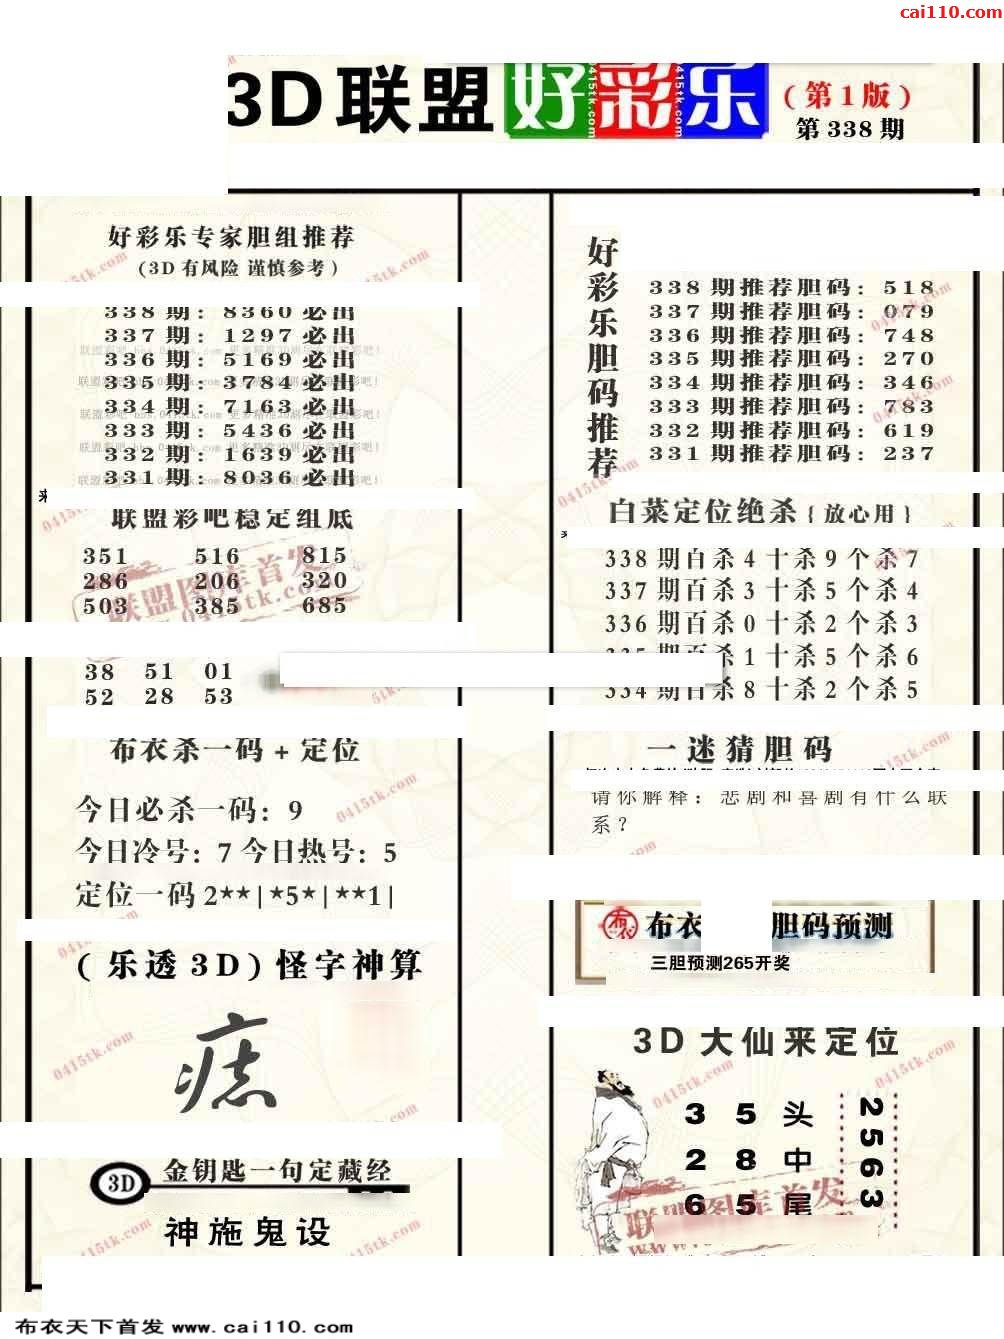 cai110.com
3D联盟好彩乐
(第1版)
第338期
好彩乐专家胆组推荐
(3D有风险 谨慎参考)
338期: 8360必出
337期: 1297必出
336期: 5169必出
335期: 3784必出
334期: 7163必出
333期: 5436必出
332期: 1639必出
331期: 8036必出
联盟彩吧稳定组底
351 516 815
286 206 320
503 385 685
38 51 01
52 28 53
布衣杀一码+定位
今日必杀一码: 9
今日冷号: 7 今日热号: 5
定位一码 2**|*5*|**1|
(乐透3D)怪字神算
痣
3D
金钥匙一句定藏经
神施鬼设
好彩乐胆码推荐
338期推荐胆码: 518
337期推荐胆码: 079
336期推荐胆码: 748
335期推荐胆码: 270
334期推荐胆码: 346
333期推荐胆码: 783
332期推荐胆码: 619
331期推荐胆码: 237
白菜定位绝杀{放心用}
338期百杀4十杀9个杀7
337期百杀3十杀5个杀4
336期百杀0十杀2个杀3
335期百杀1十杀5个杀6
334期百杀8十杀2个杀5
一迷猜胆码
请你解释: 悲剧和喜剧有什么联
系?
布衣 布衣 胆码预测
三胆预测265开奖
3D大仙来定位
3 5 头
2 8 中
6 5 尾
2563
联盟图库首发
0415tk.com
布衣天下首发 www.cai110.com